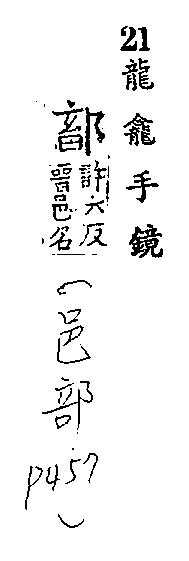 21龍龕手鏡
許六反
晉邑名
（邑部
p457）